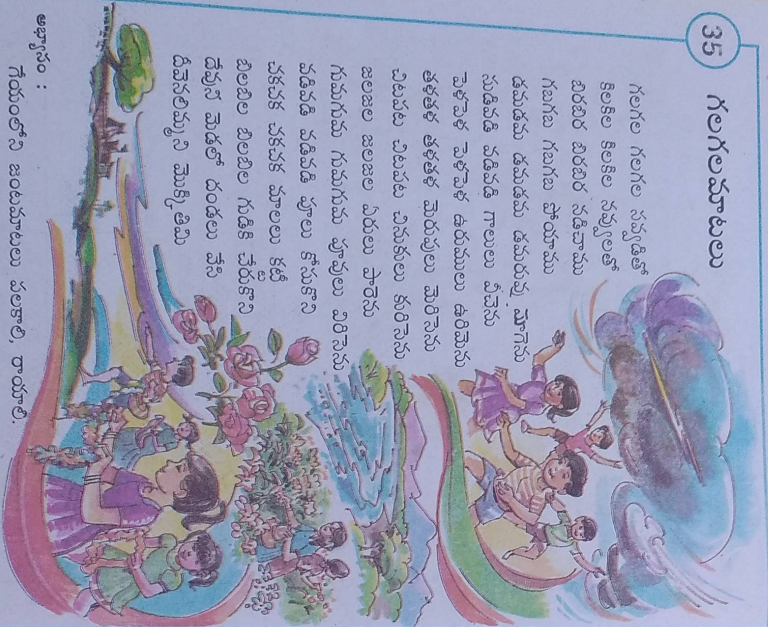 35
గలగలమాటలు
గలగల గలగల సవ్వడితో
కిలకిల కిలకిల నవ్వులతో
బిరబిర బిరబిర నడిచాము
గబగబ గబగబ పోయాము
డమడమ డమడమ డమరువు మోగెను
సుడివడి వడివడి గాలులు వీచెను
పెళపెళ పెళపెళ ఉరుములు ఉరిమెను
తళతళ తళతళ మెరుపులు మెరిసెను
చిటపట చిటపట చినుకులు కురిసెను
జలజల జలజల ఏరులు పారెను
గుమగుమ గుమగుమ పూవులు విరిసెను
వడివడి వడివడి పూలు కోసుకొని
చకచక చకచక మాలలు కట్టి
బిలబిల బిలబిల గుడికి చేరుకొని
దేవుని మెడలో దండలు వేసి
దీవెనలిమ్మని మొక్కితిమి
అభ్యాసం :
గేయంలోని జంటమాటలు పలకాలి, రాయాలి.